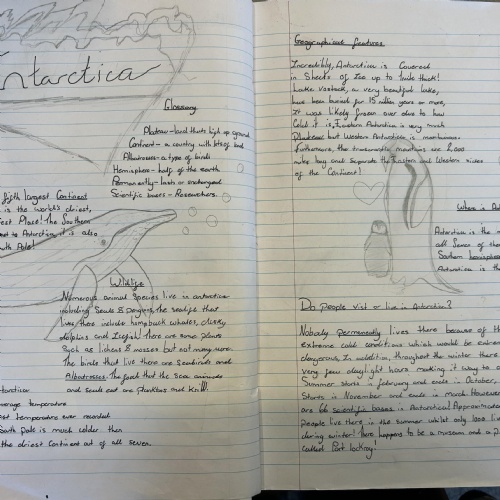 Antarctica
Glossary
Plateau - land thats high up ground
Continent - a country with lots of land
Albatrosses - a type of birds
Hemisphere - half of the earth
Permanently - lasts or unchanged
Scientific bases - Researchers.
fifth largest Continent
is the world's driest,
Place! The Southern
to Antarctica, it is also
South Pole!
Wildlife
Numerous animal species live in antarctica
including Seals & Penguins. The sealife that
lives there include humpback whales, dusky
dolphins and Icefish! There are some plants
Such as lichens & mosses but not many more.
The birds that live there are Seabirds and
Albatrosses. The fact that the sea animals
and seals eat are Planktons and Krill!
Antarctica
average temperature
temperature ever recorded
South Pole is much colder then
the driest Continent out of all seven.
Geographical features
Incredibly, Antarctica is Covered
in Sheets of Ice up to 1mile thick!
Lake Vostock, a very beautiful lake,
have been buried for 15 million years or more,
It was likely frozen over due to how
Cold it is, Eastern Antarctica is very much
Plateau but Western Antarctica is mountainous.
Furthermore, the mountains are 2,000
miles long and Separate the Eastern and Western sides
of the Continent!
Where is
Antarctica is the
all Seven of the
Southern hemisphere
Antarctica is the
Do People visit or live in Antarctica?
Nobody Permanently lives there because of the
extreme cold conditions which would be
dangerous. In addition, throughout the winter there
very few daylight hours making it way to
Summer starts in february and ends in October,
Starts in November and ends in march. However
are 66 scientific bases in Antarctica! Approximately
people live there in the summer whilst only 1000
during winter! here happens to be a museum and a
called Port lockroy!